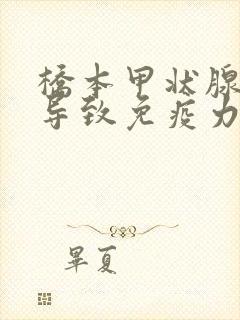 橋本甲状腺
导致免疫力
畢夏